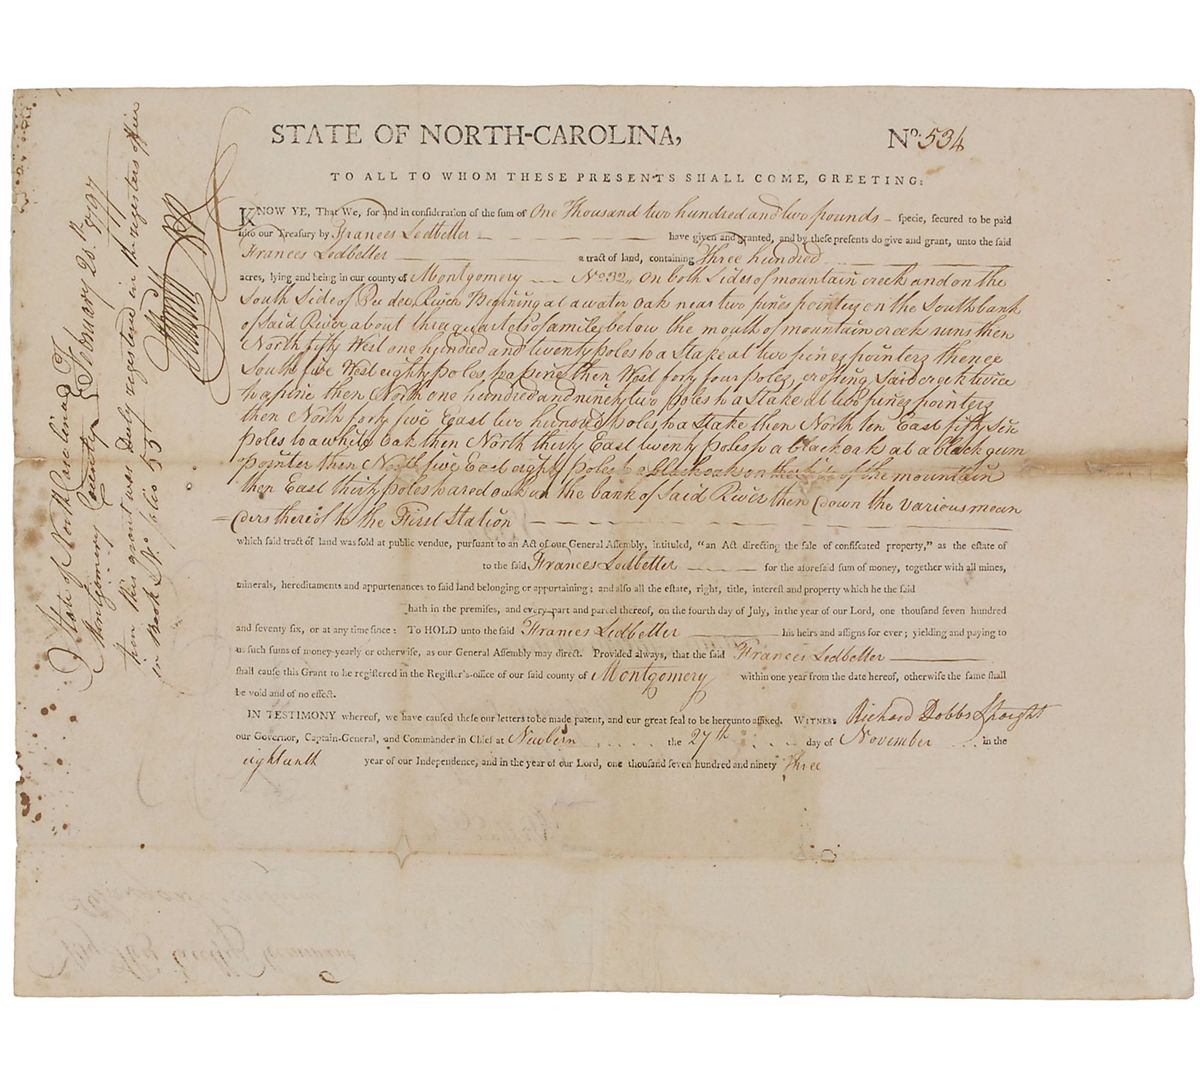 STATE OF NORTH-CAROLINA,
No. 534
TO ALL TO WHOM THESE PRESENTS SHALL COME, GREETING:
KNOW YE, That We, for and in consideration of the sum of One Thousand two hundred and two pounds – specie, secured to be paid
into our Treasury by Frances Ledbetter have given and granted, and by these presents do give and grant, unto the said
Frances Ledbetter a tract of land, containing Three hundred
acres, lying and being in our county of Montgomery No. 32, on both Sides of mountain creek and on the
South Side of Pee dee River Begining at a water Oak near two pines pointers on the South bank
of Said River about three quarters of a mile below the mouth of mountain creek runs then
North fifty West one hundred and twenty poles to a Stake at two pines pointers thence
South five West eighty poles to a pine then West forty four poles, crossing Said creek twice
to a pine then North one hundred and ninety two Poles to a Stake at two pines pointers
then North forty five East two hundred poles to a Stake then North ten East fifty six
Poles to a white Oak then North thirty East twenty Poles to a black oak at a black gum
pointer then North five East eighty Poles to a black oak on the side of the mountain
then East thirty Poles to a red oak on the bank of Said River then down the various mean
ders thereof to the First Station
which said tract of land was sold at public vendue, pursuant to an Act of our General Assembly, intituled, "an Act directing the sale of confiscated property," as the estate of
to the said Frances Ledbetter for the aforesaid sum of money, together with all mines,
minerals, hereditaments and appurtenances to said land belonging or appurtaining; and also all the estate, right, title, interest and property which he the said
hath in the premises, and every part and parcel thereof, on the fourth day of July, in the year of our Lord, one thousand seven hundred
and seventy six, or at any time since: To HOLD unto the said Frances Ledbetter his heirs and assigns for ever; yielding and paying to
us such sums of money yearly or otherwise, as our General Assembly may direct. Provided always, that the said Frances Ledbetter
shall cause this Grant to be registered in the Register's-office of our said county of Montgomery within one year from the date hereof, otherwise the same shall
be void and of no effect.
IN TESTIMONY whereof, we have caused these our letters to be made patent, and our great seal to be hereunto affixed. WITNESS Richard Dobbs Spaight
our Governor, Captain-General, and Commander in Chief at Newbern the 27th day of November in the
eighteenth year of our Independence, and in the year of our Lord, one thousand seven hundred and ninety Three
State of North Carolina
Montgomery County February 20th 1797
then this grant was duly registered in the registers office
in Book No. folio 531